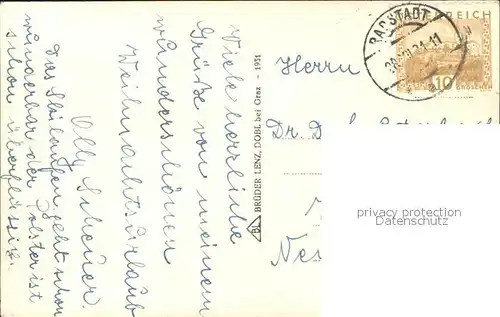 Viele herzliche
Grüße von meinem
wunderschönen
Weihnachtsurlaub
Olly Scheuer.
Das Skilaufen geht schon
wunderbar der Polster ist
schon überflüssig.
BRÜDER LENZ, DOBL bei Graz - 1931
RADSTADT
10
Herrn
Dr.
privacy protection
Datenschutz